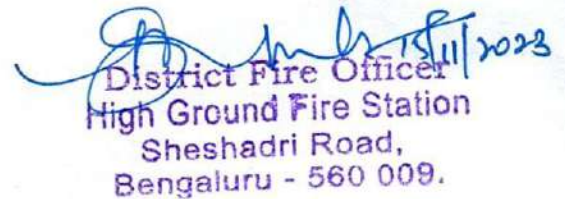 15/11/2023
District Fire Officer
High Ground Fire Station
Sheshadri Road,
Bengaluru - 560 009.